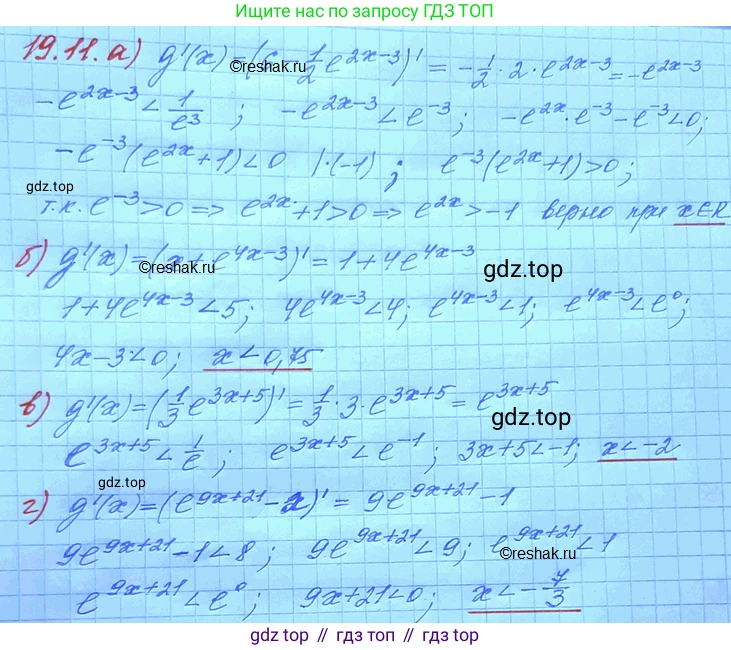 Ищите нас по запросу ГДЗ ТОП
19.11. а) g'(x)=(6-1/2 e^(2x-3))' = -1/2·2·e^(2x-3) = -e^(2x-3)
©reshak.ru
-e^(2x-3) < 1/e^3 ; -e^(2x-3) < e^(-3); -e^(2x)·e^(-3) - e^(-3) < 0;
-e^(-3)(e^(2x)+1)<0 |·(-1) ; e^(-3)(e^(2x)+1)>0;
gdz.top
т.к. e^(-3)>0 => e^(2x)+1>0 => e^(2x)>-1 верно при x∈R
б) g'(x)=(x+e^(4x-3))' = 1+4e^(4x-3)
©reshak.ru
gdz.top
1+4e^(4x-3)<5; 4e^(4x-3)<4; e^(4x-3)<1; e^(4x-3)<e^0;
4x-3<0; x<0,75
gdz.top
в) g'(x)=(1/3 e^(3x+5))' = 1/3·3·e^(3x+5) = e^(3x+5)
gdz.top
e^(3x+5) < 1/e ; e^(3x+5) < e^(-1) ; 3x+5<-1; x<-2
gdz.top
г) g'(x)=(e^(9x+21)-x)' = 9e^(9x+21)-1
9e^(9x+21)-1<8; 9e^(9x+21)<9; e^(9x+21)<1
©reshak.ru
e^(9x+21)<e^0; 9x+21<0; x<-7/3
gdz.top // гдз топ // gdz.top